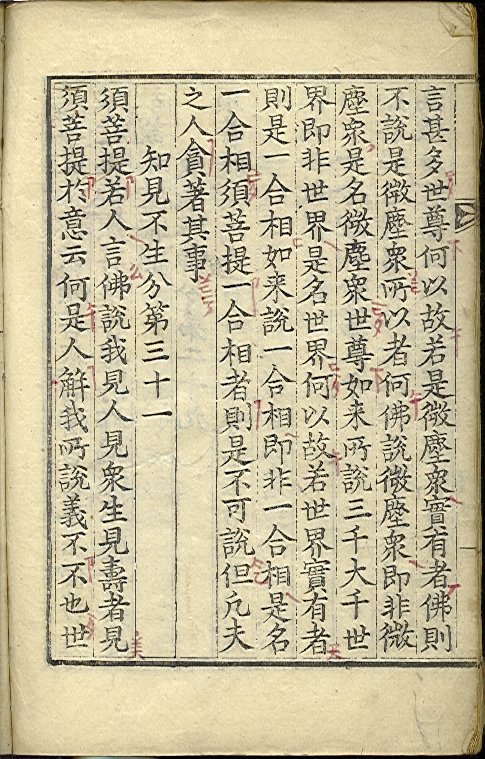 言甚多世尊何以故若是微塵衆實有者佛則
不說是微塵衆所以者何佛說微塵衆即非微
塵衆是名微塵衆世尊如来所說三千大千世
界即非世界是名世界何以故若世界實有者
則是一合相如来說一合相即非一合相是名
一合相須菩提一合相者則是不可說但凡夫
之人貪著其事
知見不生分第三十一
須菩提若人言佛說我見人見衆生見壽者見
須菩提扵意云何是人解我所說義不不也世